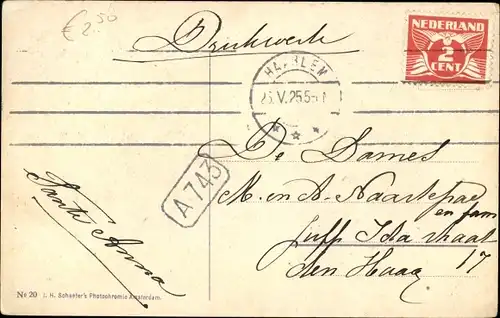 € 2.50
Drukwerk
NEDERLAND
2
CENT
HAARLEM
25.V.25 5-6
De Dames
A 743
M. en A. Naastepad
en fam
Juff Idastraat
17
den Haag
Santa Anna
No 20 J. H. Schaefer's Photochromie Amsterdam.